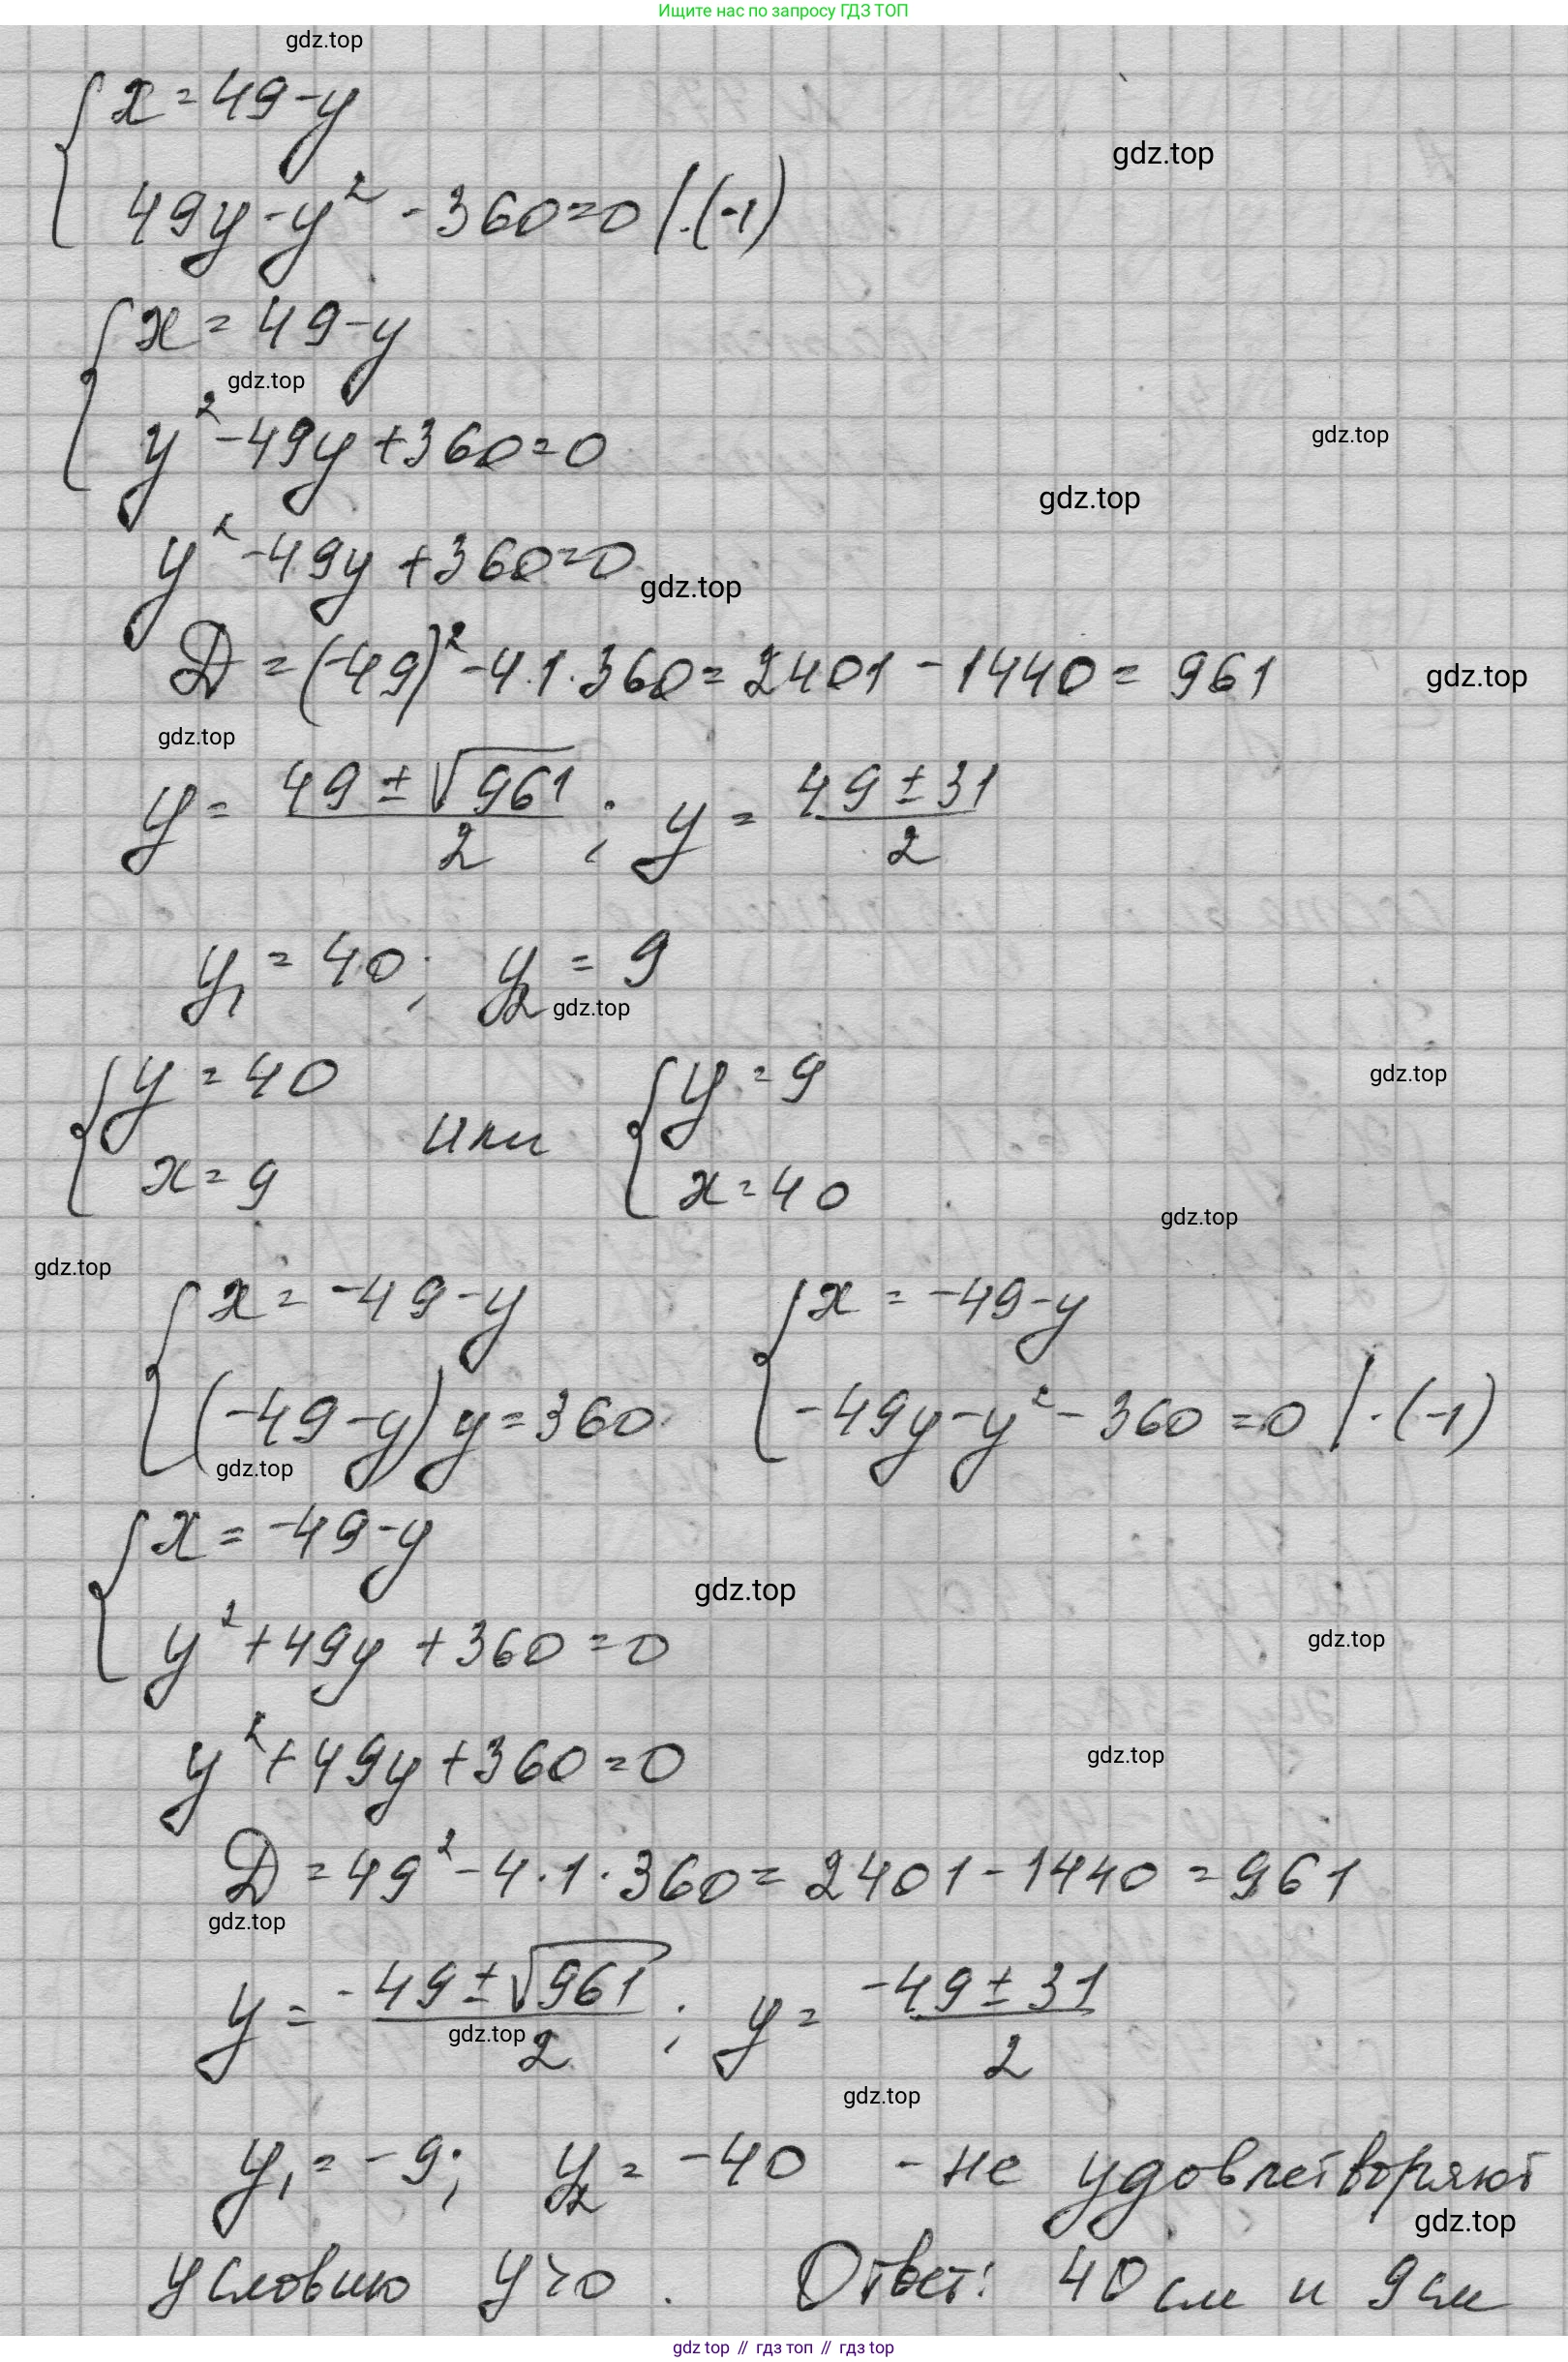 Ищите нас по запросу ГДЗ ТОП
gdz.top
{ x = 49 - y
gdz.top
49y - y² - 360 = 0 | · (-1)
{ x = 49 - y
gdz.top
y² - 49y + 360 = 0
gdz.top
gdz.top
y² - 49y + 360 = 0
gdz.top
D = (-49)² - 4 · 1 · 360 = 2401 - 1440 = 961
gdz.top
gdz.top
y = (49 ± √961)/2 ; y = (49 ± 31)/2
y₁ = 40 ; y₂ = 9
gdz.top
{ y = 40 { y = 9
gdz.top
или
x = 9 x = 40
gdz.top
gdz.top
{ x = -49 - y { x = -49 - y
(-49 - y) y = 360 -49y - y² - 360 = 0 | · (-1)
gdz.top
{ x = -49 - y
gdz.top
y² + 49y + 360 = 0
gdz.top
y² + 49y + 360 = 0
gdz.top
D = 49² - 4 · 1 · 360 = 2401 - 1440 = 961
gdz.top
y = (-49 ± √961)/2 ; y = (-49 ± 31)/2
gdz.top
gdz.top
y₁ = -9 ; y₂ = -40 - не удовлетворяют
gdz.top
условию y > 0 . Ответ: 40 см и 9 см
gdz top // гдз топ // гдз top